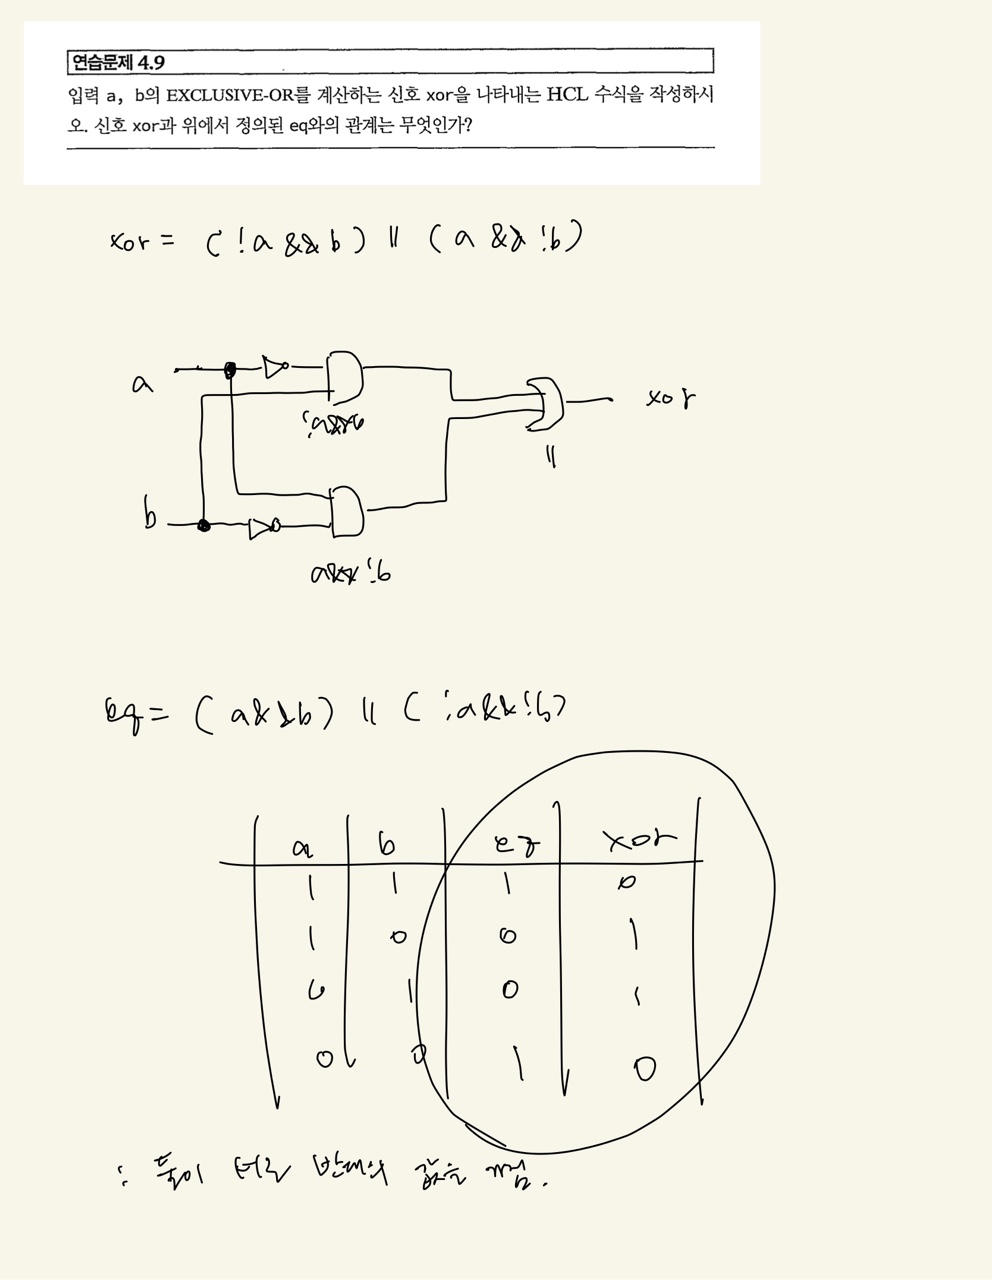 연습문제 4.9
입력 a, b의 EXCLUSIVE-OR를 계산하는 신호 xor을 나타내는 HCL 수식을 작성하시
오. 신호 xor과 위에서 정의된 eq와의 관계는 무엇인가?
xor = (!a && b) || (a && !b)
a
!a&&b
xor
||
b
a&& !b
eq = (a&&b) || (!a&&!b)
a b eq xor
1 1 1 0
1 0 0 1
0 1 0 1
0 0 1 0
∴ 둘이 서로 반대의 값을 가짐.